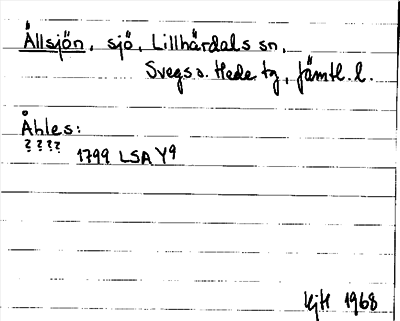 Ållsjön, sjö, Lillhärdals sn,
Svegs o. Hede tg, Jämtl. l.
Åhles:
? ? ? ?
1799 LSA Y9
KjH 1968